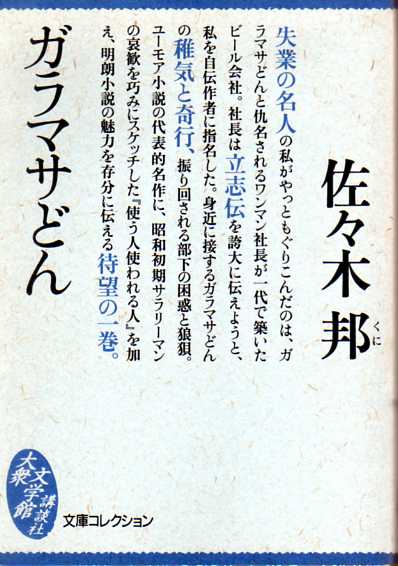 佐々木 邦
くに
失業の名人の私がやっともぐりこんだのは、ガ
ラマサどんと仇名されるワンマン社長が一代で築いた
ビール会社。社長は立志伝を誇大に伝えようと、
私を自伝作者に指名した。身近に接するガラマサどん
の稚気と奇行、振り回される部下の困惑と狼狽。
ユーモア小説の代表的名作に、昭和初期サラリーマン
の哀歓を巧みにスケッチした『使う人使われる人』を加
え、明朗小説の魅力を存分に伝える待望の一巻。
ガラマサどん
大衆
文学館
講談社
文庫コレクション